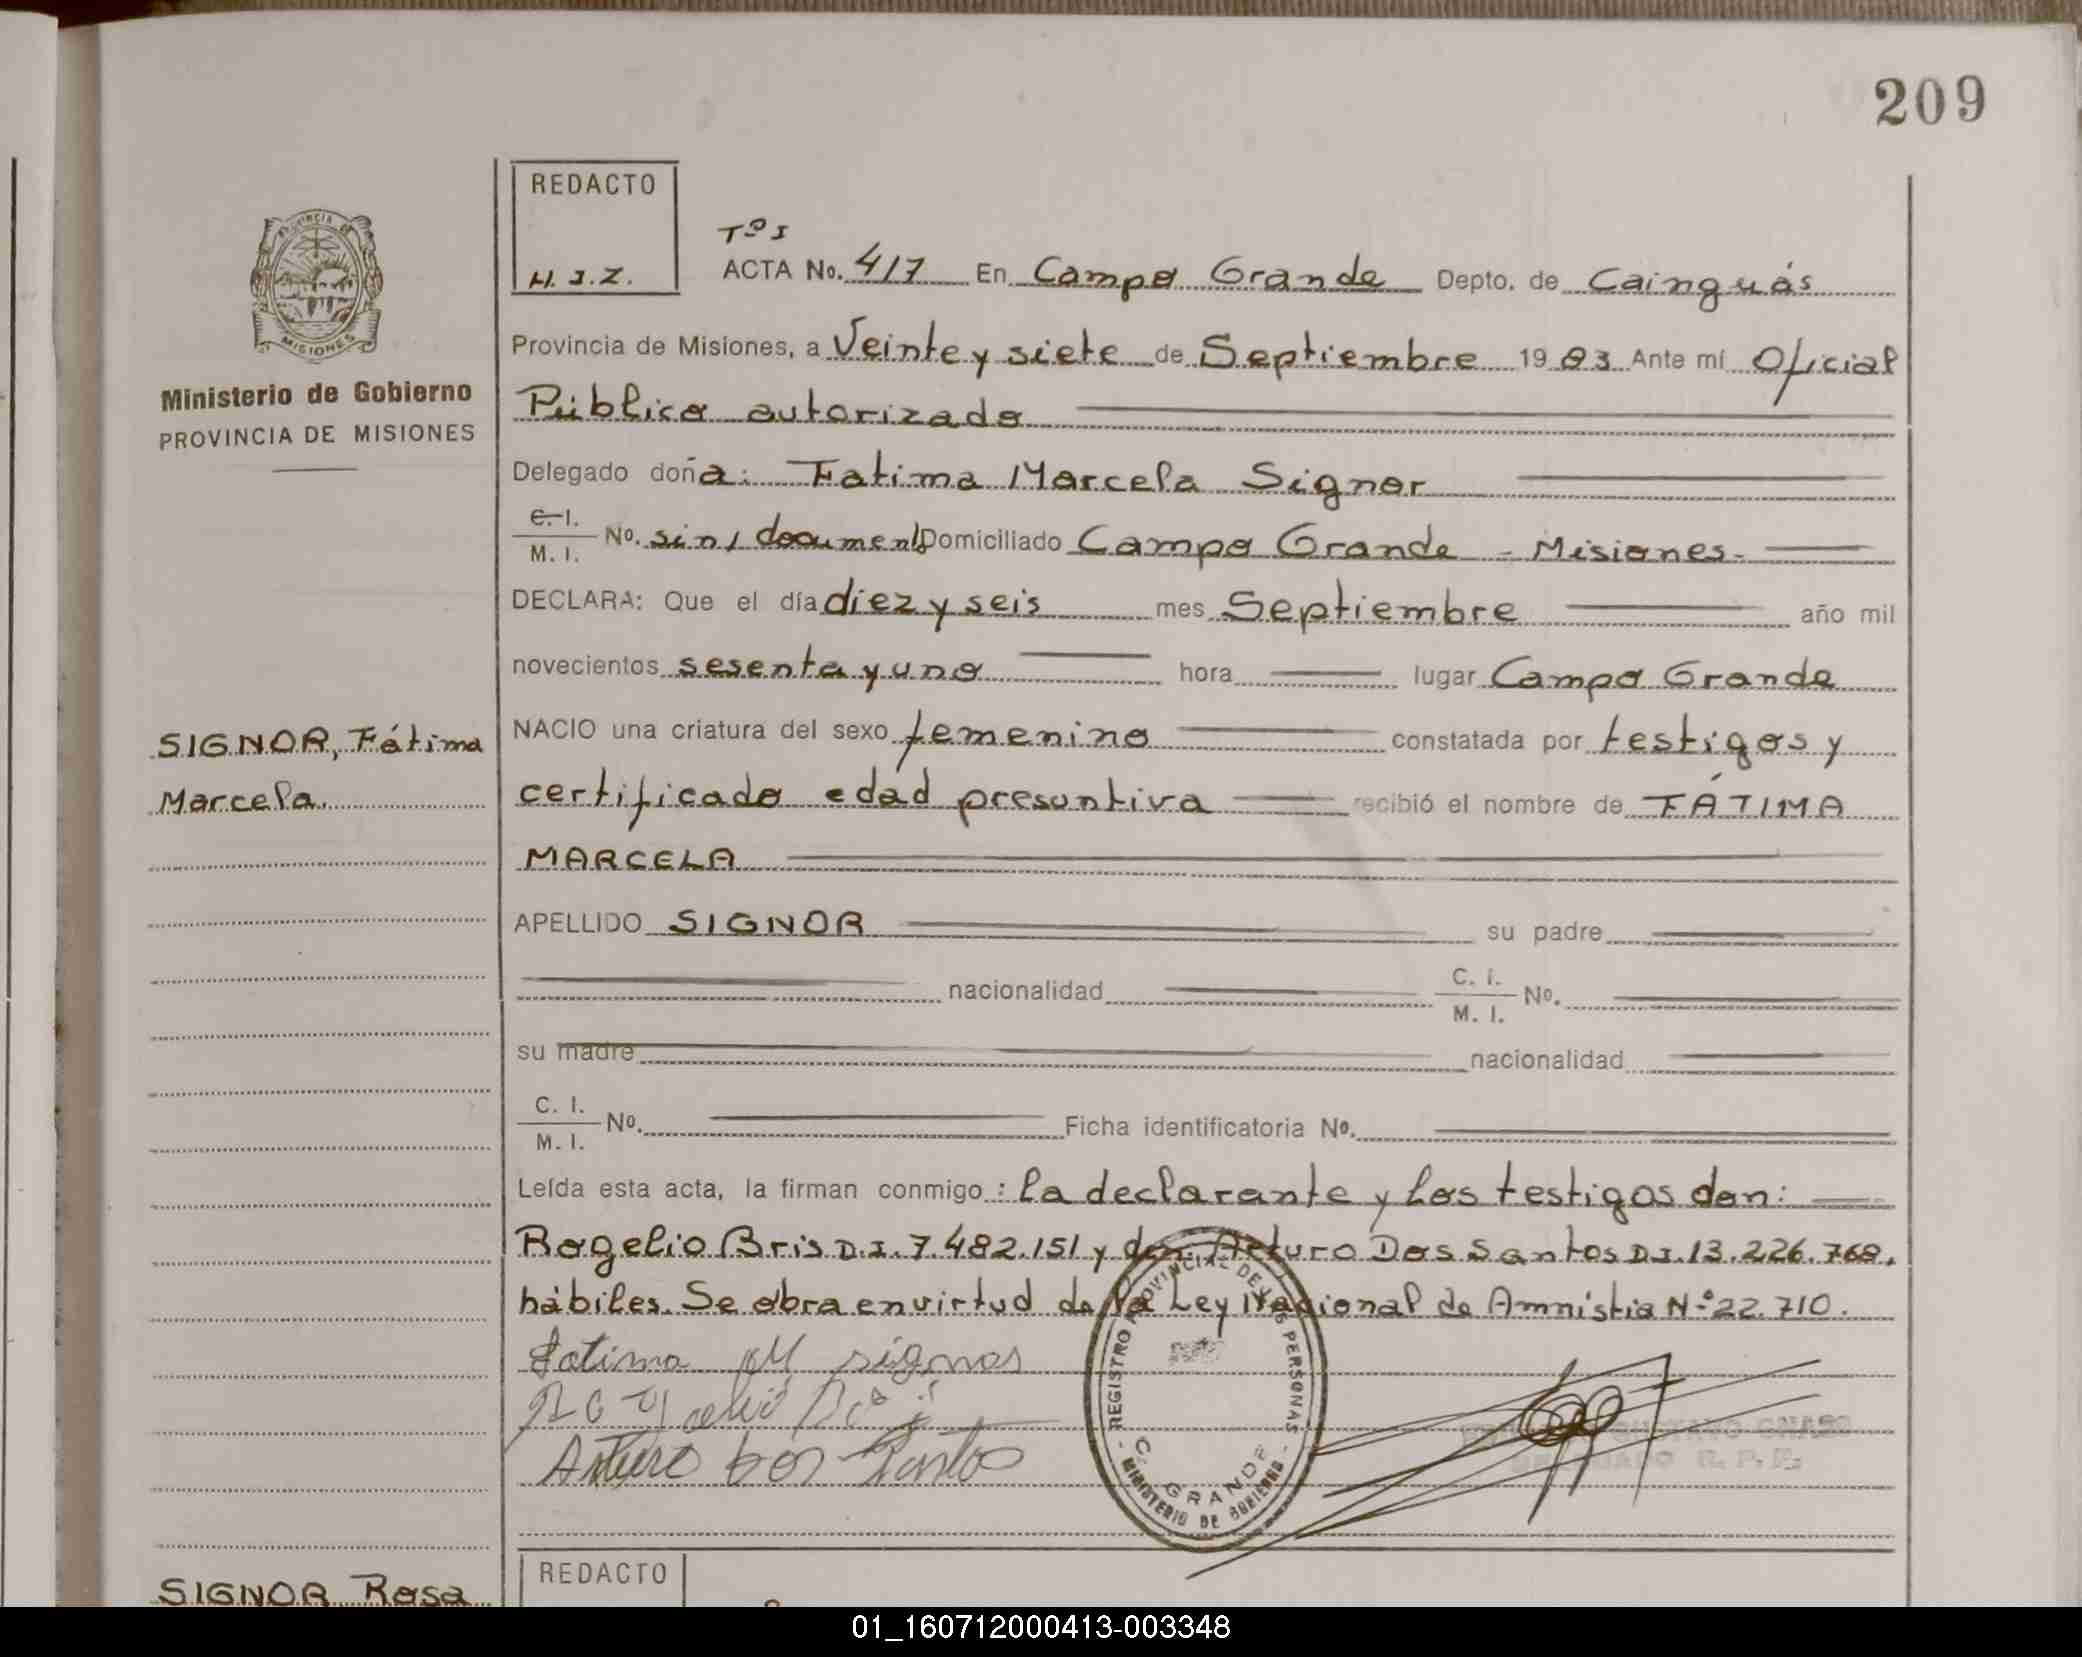 209
REDACTO
H.J.Z.
Tº I
ACTA No. 417 En Campo Grande Depto. de Cainguás
Provincia de Misiones, a Veinte y siete de Septiembre 1983 Ante mí Oficial
Público autorizado
Delegado doña: Fatima Marcela Signor
C. I.
M. I.
No. sin/ document Domiciliado Campo Grande - Misiones-
DECLARA: Que el día diez y seis mes Septiembre año mil
novecientos sesenta y uno hora lugar Campo Grande
NACIO una criatura del sexo femenino constatada por testigos y
certificado edad presuntiva recibió el nombre de FÁTIMA
MARCELA
APELLIDO SIGNOR su padre
nacionalidad C. I.
M. I.
No.
su madre nacionalidad
C. I.
M. I.
No. Ficha identificatoria No.
Leída esta acta, la firman conmigo: la declarante y los testigos don:
Rogelio Bris D.I. 7.482.151 y don: Arturo Dos Santos D.I. 13.226.768,
hábiles. Se obra en virtud de la Ley Nacional de Amnistia N.º 22.710.
Fatima M signor
Arturo Dos Santos
REGISTRO PROVINCIAL DE LAS PERSONAS
C. GRANDE
- MINISTERIO DE GOBIERNO -
PROVINCIA DE
MISIONES
Ministerio de Gobierno
PROVINCIA DE MISIONES
SIGNOR, Fátima
Marcela.
REDACTO
SIGNOR Rosa
01_160712000413-003348